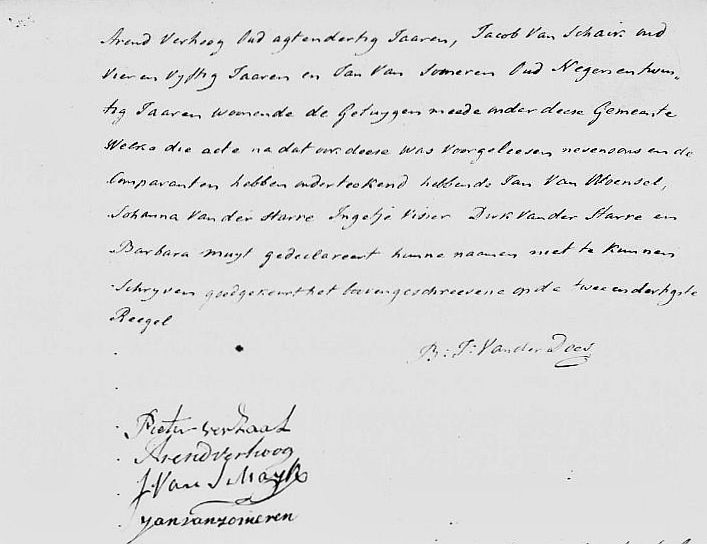 Arend Verhoog Oud agtendertig Jaaren, Jacob Van Schaik oud
Vier en Vyftig Jaaren en Jan Van Someren Oud Negenentwin„
tig Jaaren woonende de Getuygen meede onder deese Gemeente
Welke die acte na dat ook deese was Voorgeleesen nevens ons en de
Comparanten hebben onderteekend hebbende Jan Van Woensel,
Johanna Van der Starre Ingetje Visser Dirk Van der Starre en
Barbara Muyt gedeclareert hunne naamen niet te kunnen
Schryven goedgekeurt het bovengeschreevene op de tweeendertigste
Reegel
B: J: Van der Does
Pieter verhaat
Arend verhoog
J. Van Schayk
jan van zomeren